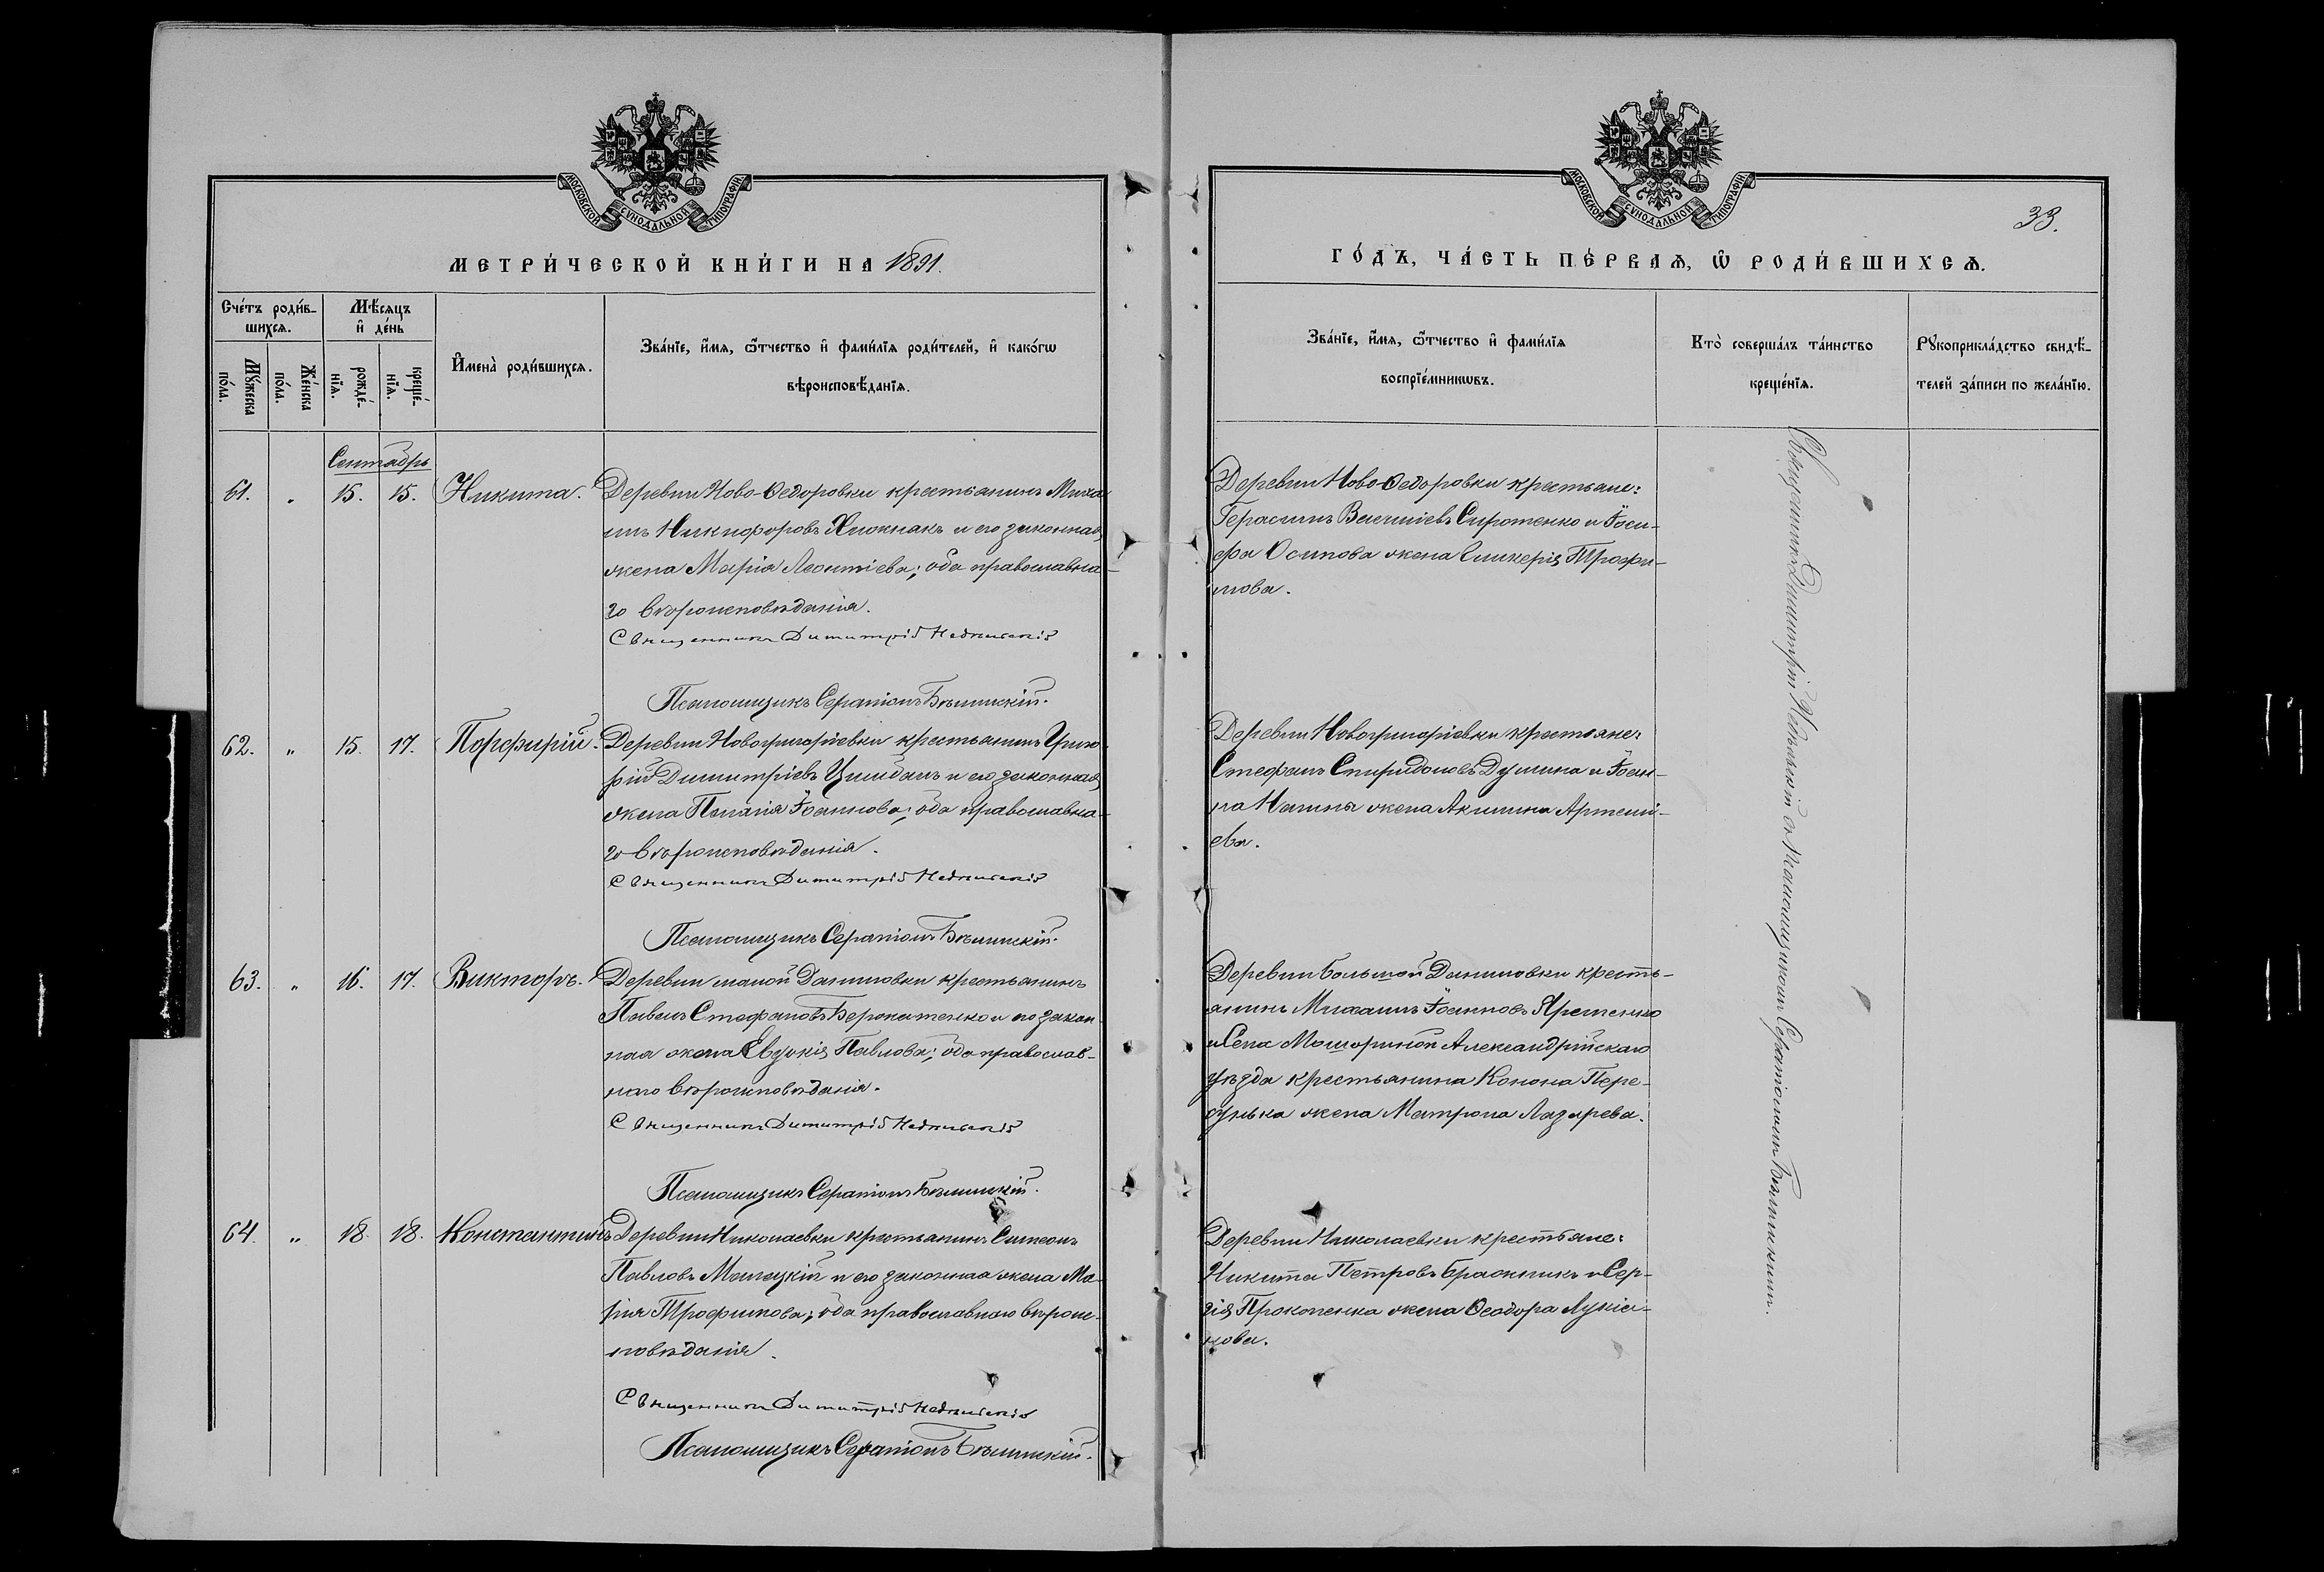 МОСКОВСКОЙ СУНОДАЛЬНОЙ ТИПОГРАФІИ
МЕТРИ́ЧЕСКОЙ КНИ́ГИ НА 1891.
Сче́тъ роди́в-
шихсѧ.
Мѣ́сѧцъ
и҆ де́нь
Мꙋ́жеска по́ла.
Же́нска по́ла.
рожде́-
нїѧ.
креще́-
нїѧ.
И҆мена̀ роди́вшихсѧ.
Зва́нїе, и҆́мѧ, ѻ҆́тчество и҆ фами́лїѧ роди́телей, и҆ како́гѡ
вѣроисповѣ́данїѧ.
Сентябрь
61. " 15. 15. Никита.
Деревни Ново-Ѳедоровки крестьянинъ Миха
илъ Никифоровъ и его законная
жена Марія Леонтіева; оба православна-
го вѣроисповѣданія.
Священникъ Димитрій
Псаломщикъ Серапіонъ Бѣлинскій.
62. " 15. 17. Порфирій.
Деревни Новогригоріевки крестьянинъ Григо-
рій Димитріевъ и его законная
жена Пелагія Іоаннова; оба православна-
го вѣроисповѣданія.
Священникъ Димитрій
Псаломщикъ Серапіонъ Бѣлинскій.
63. " 16. 17. Викторъ.
Деревни малой Даниловки крестьянинъ
Павелъ Стефановъ и его закон
ная жена Евдокія Павлова; оба православ-
наго вѣроисповѣданія.
Священникъ Димитрій
Псаломщикъ Серапіонъ Бѣлинскій.
64. " 18. 18. Константинъ
Деревни Николаевки крестьянинъ Симеонъ
Павловъ и его законная жена Ма-
рія Трофимова; оба православнаго вѣроис-
повѣданія.
Священникъ Димитрій
Псаломщикъ Серапіонъ Бѣлинскій.
МОСКОВСКОЙ СУНОДАЛЬНОЙ ТИПОГРАФІИ
33.
ГО́ДЪ, ЧА́СТЬ ПЕ́РВАѦ, Ѡ҆ РОДИ́ВШИХСѦ.
Зва́нїе, и҆́мѧ, ѻ҆́тчество и҆ фами́лїѧ
воспрїе́мникѡвъ.
Кто̀ соверша́лъ та́инство
креще́нїѧ.
Рꙋкоприкла́дство свидѣ́-
телей за́писи по жела́нїю.
Деревни Ново-Ѳедоровки крестьяне:
Герасимъ Сиротенко и Іоси-
фа Осипова жена Гликерія Трофи-
мова.
Деревни Новогригоріевки крестьяне:
Стефанъ Спиридоновъ и Іоан-
на жена Акилина Артемі-
ева.
Деревни Большой Даниловки кресть-
янинъ Михаилъ Іоанновъ Яременко
и Села Мошориной Александрійскаго
уѣзда крестьянина Конона Пере-
жена Матрона Лазарева.
Деревни Николаевки крестьяне:
Никита Петровъ Бражникъ и Сер-
гія Прокопенка жена Ѳеодора Лукіа-
нова.
Священникъ Димитрій съ псаломщикомъ Серапіономъ Бѣлинскимъ.